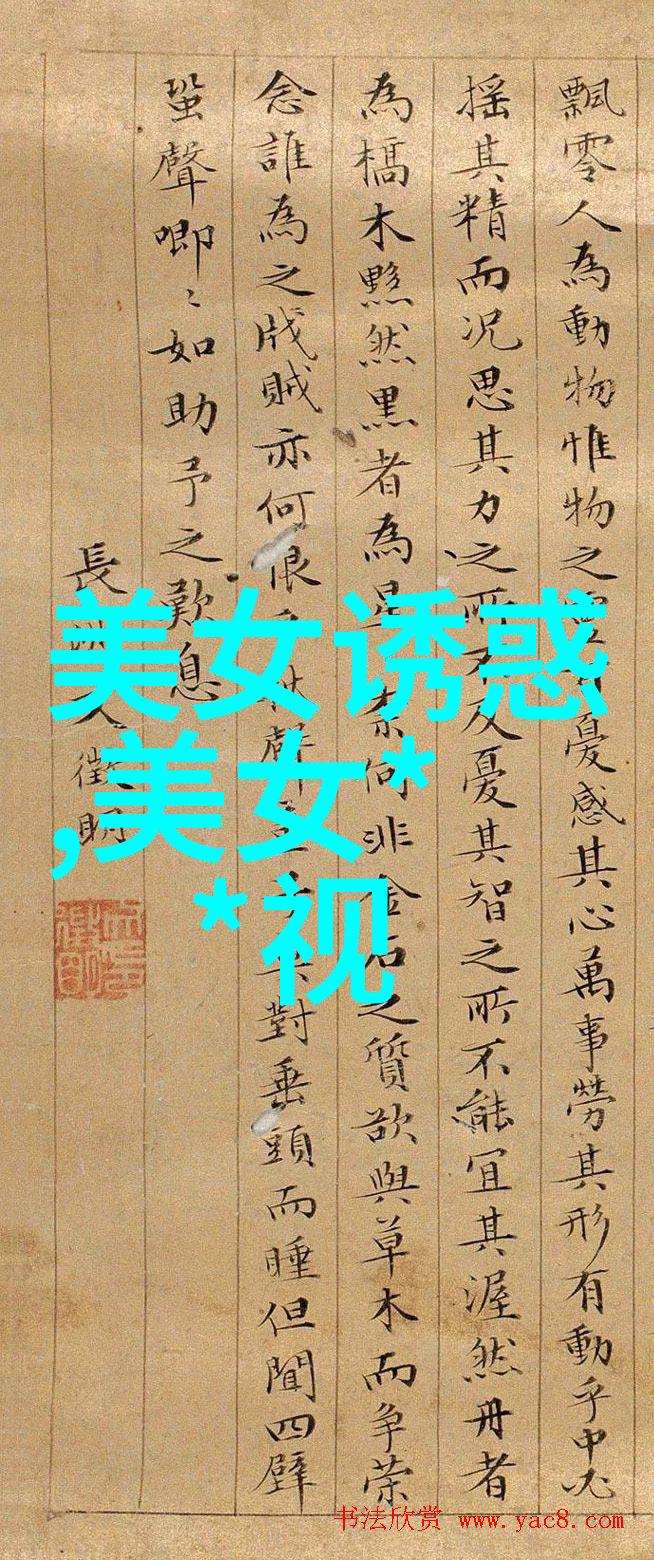 飄零人為動物惟物之憂感其心萬事勞其形有動乎中必
摇其精而況思其力之所不及憂其智之所不能宜其渥然丹者
為槁木黟然黒者為星奈何非金石之質欲與草木而争荣
念誰為之戕賊亦何恨秋聲對垂頭而睡但聞四壁
蛩聲唧〻如助予之歎息
長文徵明
美女诱惑
,美女*
*视
书法欣赏 www.yac8.com